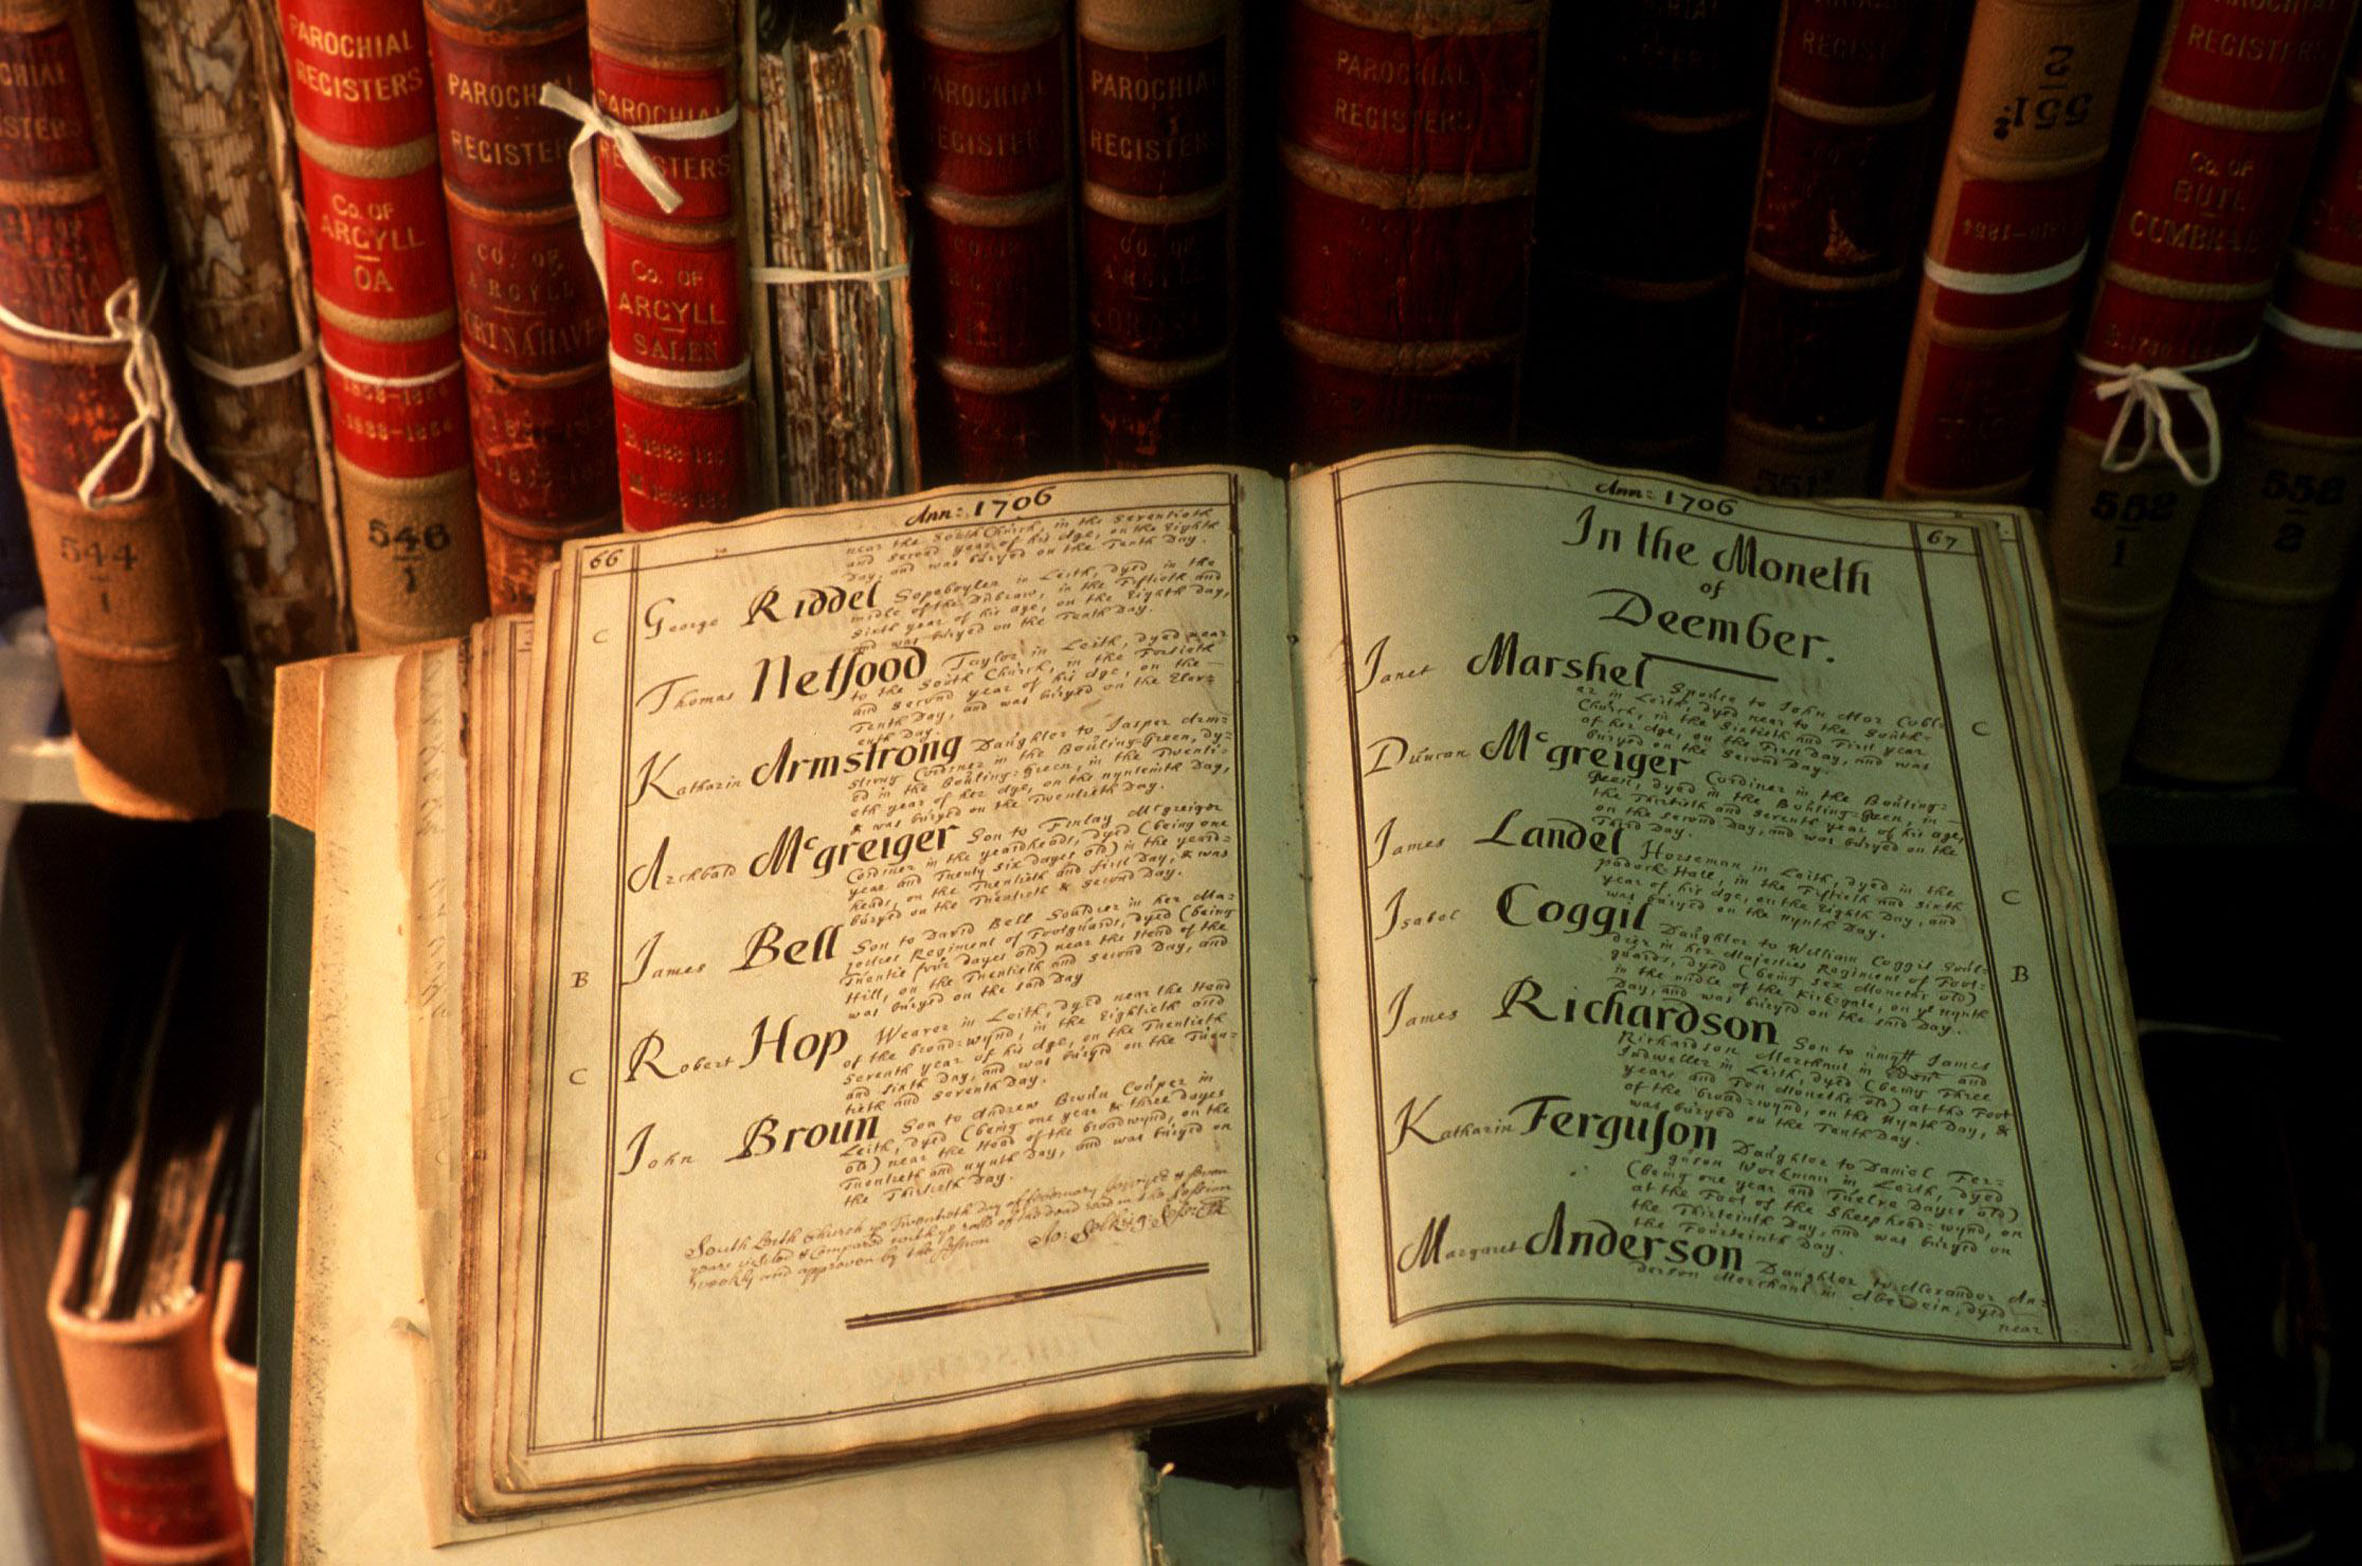 PAROCHIAL
REGISTERS
Co. OF
ARGYLL
OA
546
1
544
1
PAROCHIAL
REGISTERS
CO. OF
ARGYLL
PAROCHIAL
REGISTERS
Co. OF
ARGYLL
SALEN
PAROCHIAL
REGISTERS
PAROCHIAL
REGISTERS
CO. OF
ARGYLL
PAROCHIAL
REGISTERS
551
2
REGISTERS
Co. OF
BUTE
CUMBRAE
552
1
558
2
66
Ann: 1706
near the South Church, in the Seventieth
and second year of his Age, on the Eighth
Day, and was buryed on the Tenth Day.
C
George Riddel Sopeboyler in Leith, dyed in the
midle of the in the Fiftieth and
Sixth year of his age, on the Eighth Day,
and was buryed on the Tenth Day.
Thomas Netsood Taylor in Leith, dyed near
to the South Church, in the Fortieth
and second year of his Age, on the
Tenth Day, and was buryed on the Elev=
enth Day.
Katharin Armstrong Daughter to Jasper Arm=
strong Cordiner in the Bouling=Green, dy=
ed in the Bouling=Green, in the Twenti=
eth year of her Age, on the nynteinth Day,
& was buryed on the Twentieth Day.
Archbald Mcgreiger Son to Finlay Mcgreigor
Cordiner in the yeardheads, dyed (being one
year and Twenty six dayes old) in the yeard=
heads, on the Twentieth and first Day, & was
buryed on the Twentieth & second Day.
B
James Bell Son to David Bell Souldier in her Ma=
jesties Regiment of Footguards, dyed (being
Twentie four dayes old) near the Head of the
Hill, on the Twentieth and second Day, and
was buryed on the said Day
C
Robert Hop Weaver in Leith, dyed near the Head
of the broad=wynd, in the Eightieth and
Seventh year of his Age, on the Twentieth
and sixth Day, and was buryed on the Twen=
tieth and seventh Day.
John Broun Son to Andrew Broun Couper in
Leith, dyed (being one year & three dayes
old) near the Head of the broadwynd, on the
Twentieth and nynth Day, and was buryed on
the Thirtieth Day.
South Leith Church ye Twentieth day of February
years visited & Compared with ye rolls of the dead read in the Session
weekly and approven by the Session
67
Ann: 1706
In the Moneth
of
Deember.
Janet Marshel Spouse to John Mor Coble=
er in Leith, dyed near to the South=
Church, in the Sixtieth and First year
of her Age, on the First Day, and was
buryed on the Second Day.
C
Duncan Mcgreiger Cordiner in the Bouling=
Green, dyed in the Bouling=Green, in
the Thirtieth and seventh year of his age,
on the second Day, and was buryed on the
Third Day.
James Landel Horseman in Leith, dyed in the
padock=Hall, in the Fiftieth and sixth
year of his Age, on the Eighth Day, and
was buryed on the nynth Day.
C
Isabel Coggil Daughter to William Coggil Soul=
dier in her Majesties Regiment of Foot=
guards, dyed (being sex Moneths old)
in the midle of the Kirk=gate, on ye nynth
Day, and was buryed on the said Day.
B
James Richardson Son to James
Richardson Merchant in Edinr and
Indweller in Leith, dyed (being Three
years and Ten Moneths old) at the Foot
of the broad=wynd, on the Nynth Day, &
was buryed on the Tenth Day.
Katharin Ferguson Daughter to Daniel Fer=
guson Workman in Leith, dyed
(being one year and Twelve Dayes old)
at the Foot of the Sheephead=wynd, on
the Thirteinth Day, and was buryed on
the Fourteinth Day.
Margaret Anderson Daughter to Alexander An=
derson Merchant in Aberdein, dyed
near